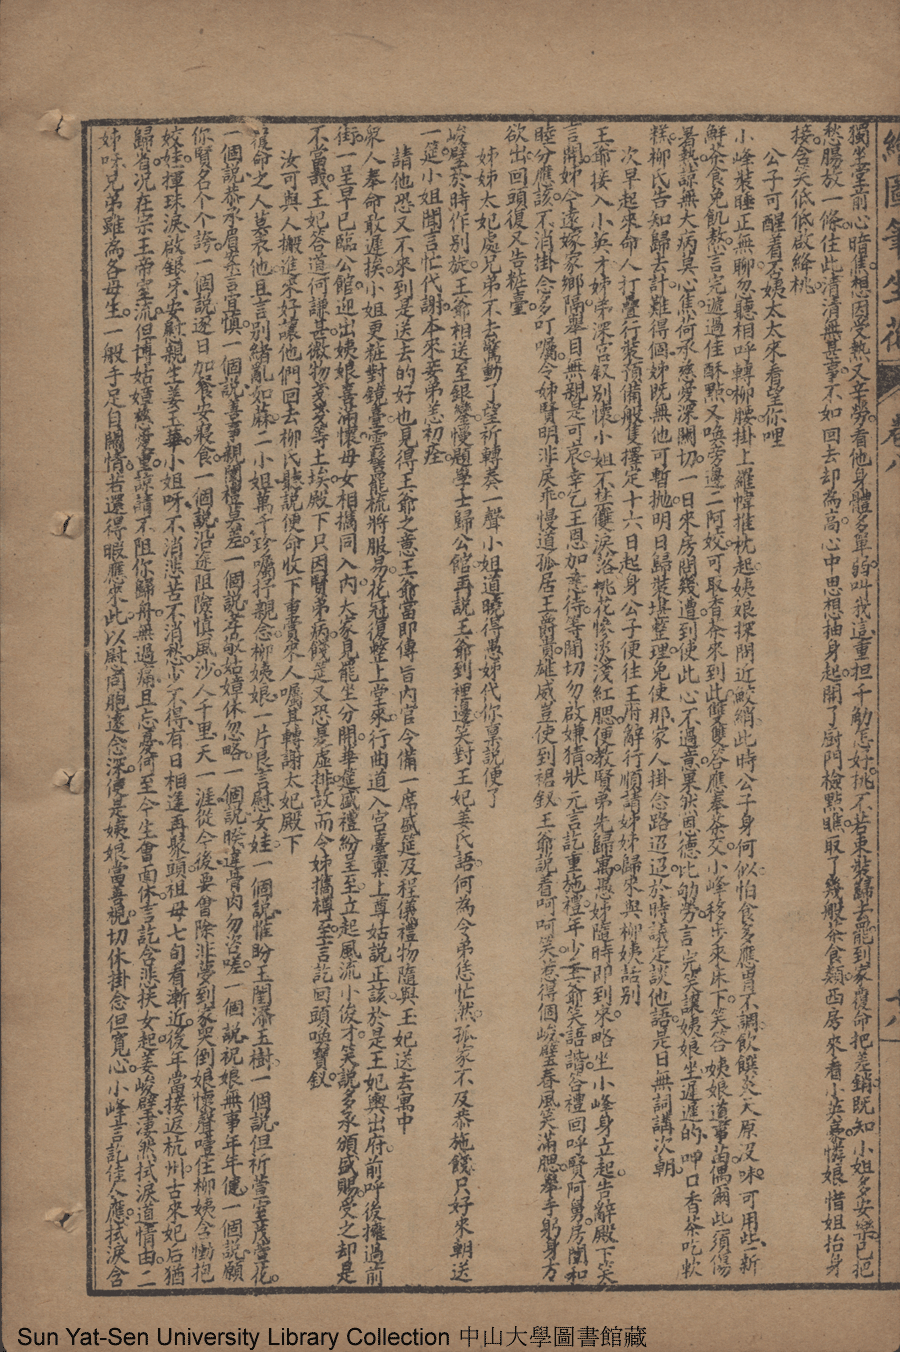 繪圖筆生花 卷八 十八
獨坐堂前心暗焦想因受熱又辛勞看他身體多單弱叫我這重担千觔怎好挑不若束裝歸去罷到家覆命把差銷既知小姐多安樂已把
愁腸放一條住此清清無甚事不如回去却為高心中思想抽身起開了廚門檢點瞧取了幾般茶食類西房來看小英豪憐娘惜姐抬身
接含笑低低啟絳桃
公子可醒着否姨太太來看望你哩
小峰裝睡正無聊忽聽相呼轉柳腰掛上羅幃推枕起姨娘探問近鮫綃此時公子身何似怕食多應胃不調飲饌炎天原沒味可用些新
鮮茶食免飢熬言完遞過佳酥點又喚旁邊二阿姣可取香茶來到此雙雙答應奉茶交小峰移步來床下笑答姨娘遺事苗偶爾此須傷
暑熱諒無大病莫心焦荷承慈愛深關切一日來房問幾遭到使此心不過意果然恩德比劬勞言完笑讓姨娘坐遲遲的呷口香茶吃軟
糕柳氏告知歸去計難得個姊既無他可暫拋明日歸裝堪整理免使那家人掛念路迢迢於時議定談他語是日無詞講次朝
次早起來命人打疊行裝預備船隻擇定十六日起身公子便往王府辭行順請姊姊歸來與柳姨話別
王爺接入小英才姊弟深宮叙別懷小姐不禁雙淚落桃花慘淡淺紅腮便教賢弟先歸寓愚姊隨時即到來略坐小峰身立起告辭殿下笑
言開姊今遠嫁家鄉隔舉目無親是可哀幸乞王恩加意待等閒切勿啟嫌猜狀元言訖重施禮年少王爺笑語諧答禮回呼賢阿舅房闈和
睦分應該不消掛念多叮囑令姊賢明非戾乖慢道孤居王爵貴雄威豈使到裙釵王爺說着呵呵笑惹得個峻壁春風笑滿腮舉手躬身方
欲出回頭復又告粧臺
姊姊太妃處兄弟不去驚動了望祈轉奏一聲小姐道曉得愚姊代你稟說便了
峻壁於時作別旋王爺相送至銀鑾慢題學士歸公館再說王爺到裡邊笑對王妃姜氏語何為令弟恁忙然孤家不及恭施餞只好來朝送
一筵小姐聞言忙代謝本來妾弟恙初痊
請他恐又不來到是送去的好也見得王爺之意王爺當即傳旨內官令備一席盛筵及程儀禮物隨與王妃送去寓中
眾人奉命敢遲挨小姐更粧對鏡臺雲鬢籠梳將服易花冠復整上堂來行曲道入宮臺稟上尊姑說正該於是王妃輿出府前呼後擁過前
街一呈早已臨公館迎出姨娘喜滿懷母女相攜同入內大家見罷坐分開華筵盛禮紛呈至立起風流小俊才笑說多承頒盛賜受之却是
不當義王妃答道何謙甚微物戔戔等土埃殿下只因賢弟病餞筵又恐是虛排故而令姊攜樽至言訖回頭喚寶釵
汝可與人搬進來好讓他們回去柳氏聽說便命收下重賞來人囑其轉謝太妃殿下
覆命之人暮表他且言別緒亂如蔴二小姐萬千珍囑抒親念柳姨娘一片良言慰女娃一個說惟盼玉閨添玉樹一個說但祈萱室茂萱花
一個說恭承眉案言宜慎一個說喜事親闈禮莫差一個說孝敬姑嫜休忽略一個說睽違骨肉勿咨嗟一個說祝娘無事年年健一個說願
你賢名个个誇一個說逐日加餐安寢食一個說沿途阻險慎風沙人千里天一涯從今後要會除非夢到家哭倒娘懷聲噎住柳姨含慟抱
姣娃揮珠淚啟銀牙安慰親生姜玉華小姐呀不消悲苦不消愁少不得有日相逢再聚頭祖母七旬看漸近後年當接返杭州古來妃后猶
歸省況在宗王帝室流但博姑嫜慈愛重諒請不阻你歸舟無過痛且忘憂倘至今生會面休言訖含悲扶女起姜峻壁淒然拭淚道情由二
姊呀兄弟雖為各母生一般手足自關情若還得暇應來此以慰同胞遠念深便是姨娘當喜視切休掛念但寬心小峰言訖佳人應拭淚含
Sun Yat-Sen University Library Collection 中山大學圖書館藏